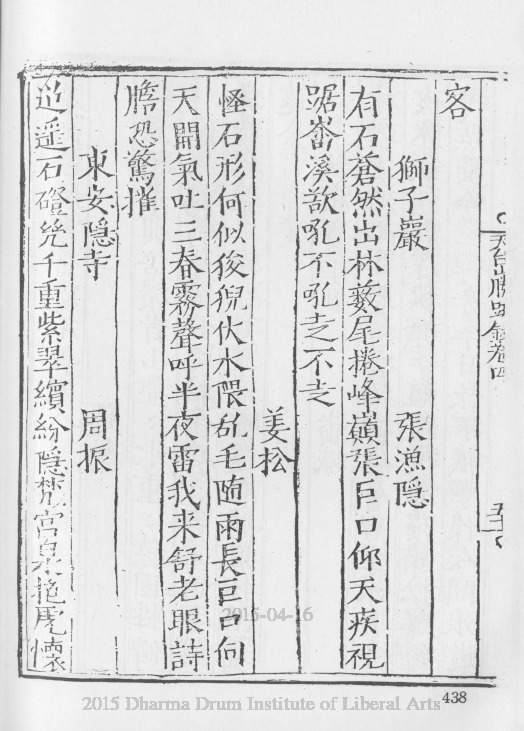 天台山勝跡錄卷四
客
獅子巖 張漁隱
有石蒼然出林薮尾捲峰巔張巨口仰天疾視
踞崙溪欲吼不吼走不走
姜松
怪石形何似狻猊伏水隈乱毛随雨長巨口向
天開氣吐三春霧聲呼半夜雷我来舒老眼詩
膽恐驚摧
東安隠寺 周振
迢遥石磴幾千重紫翠繽紛隠梵宫泉
2015-04-16
2015 Dharma Drum Institute of Liberal Arts
438